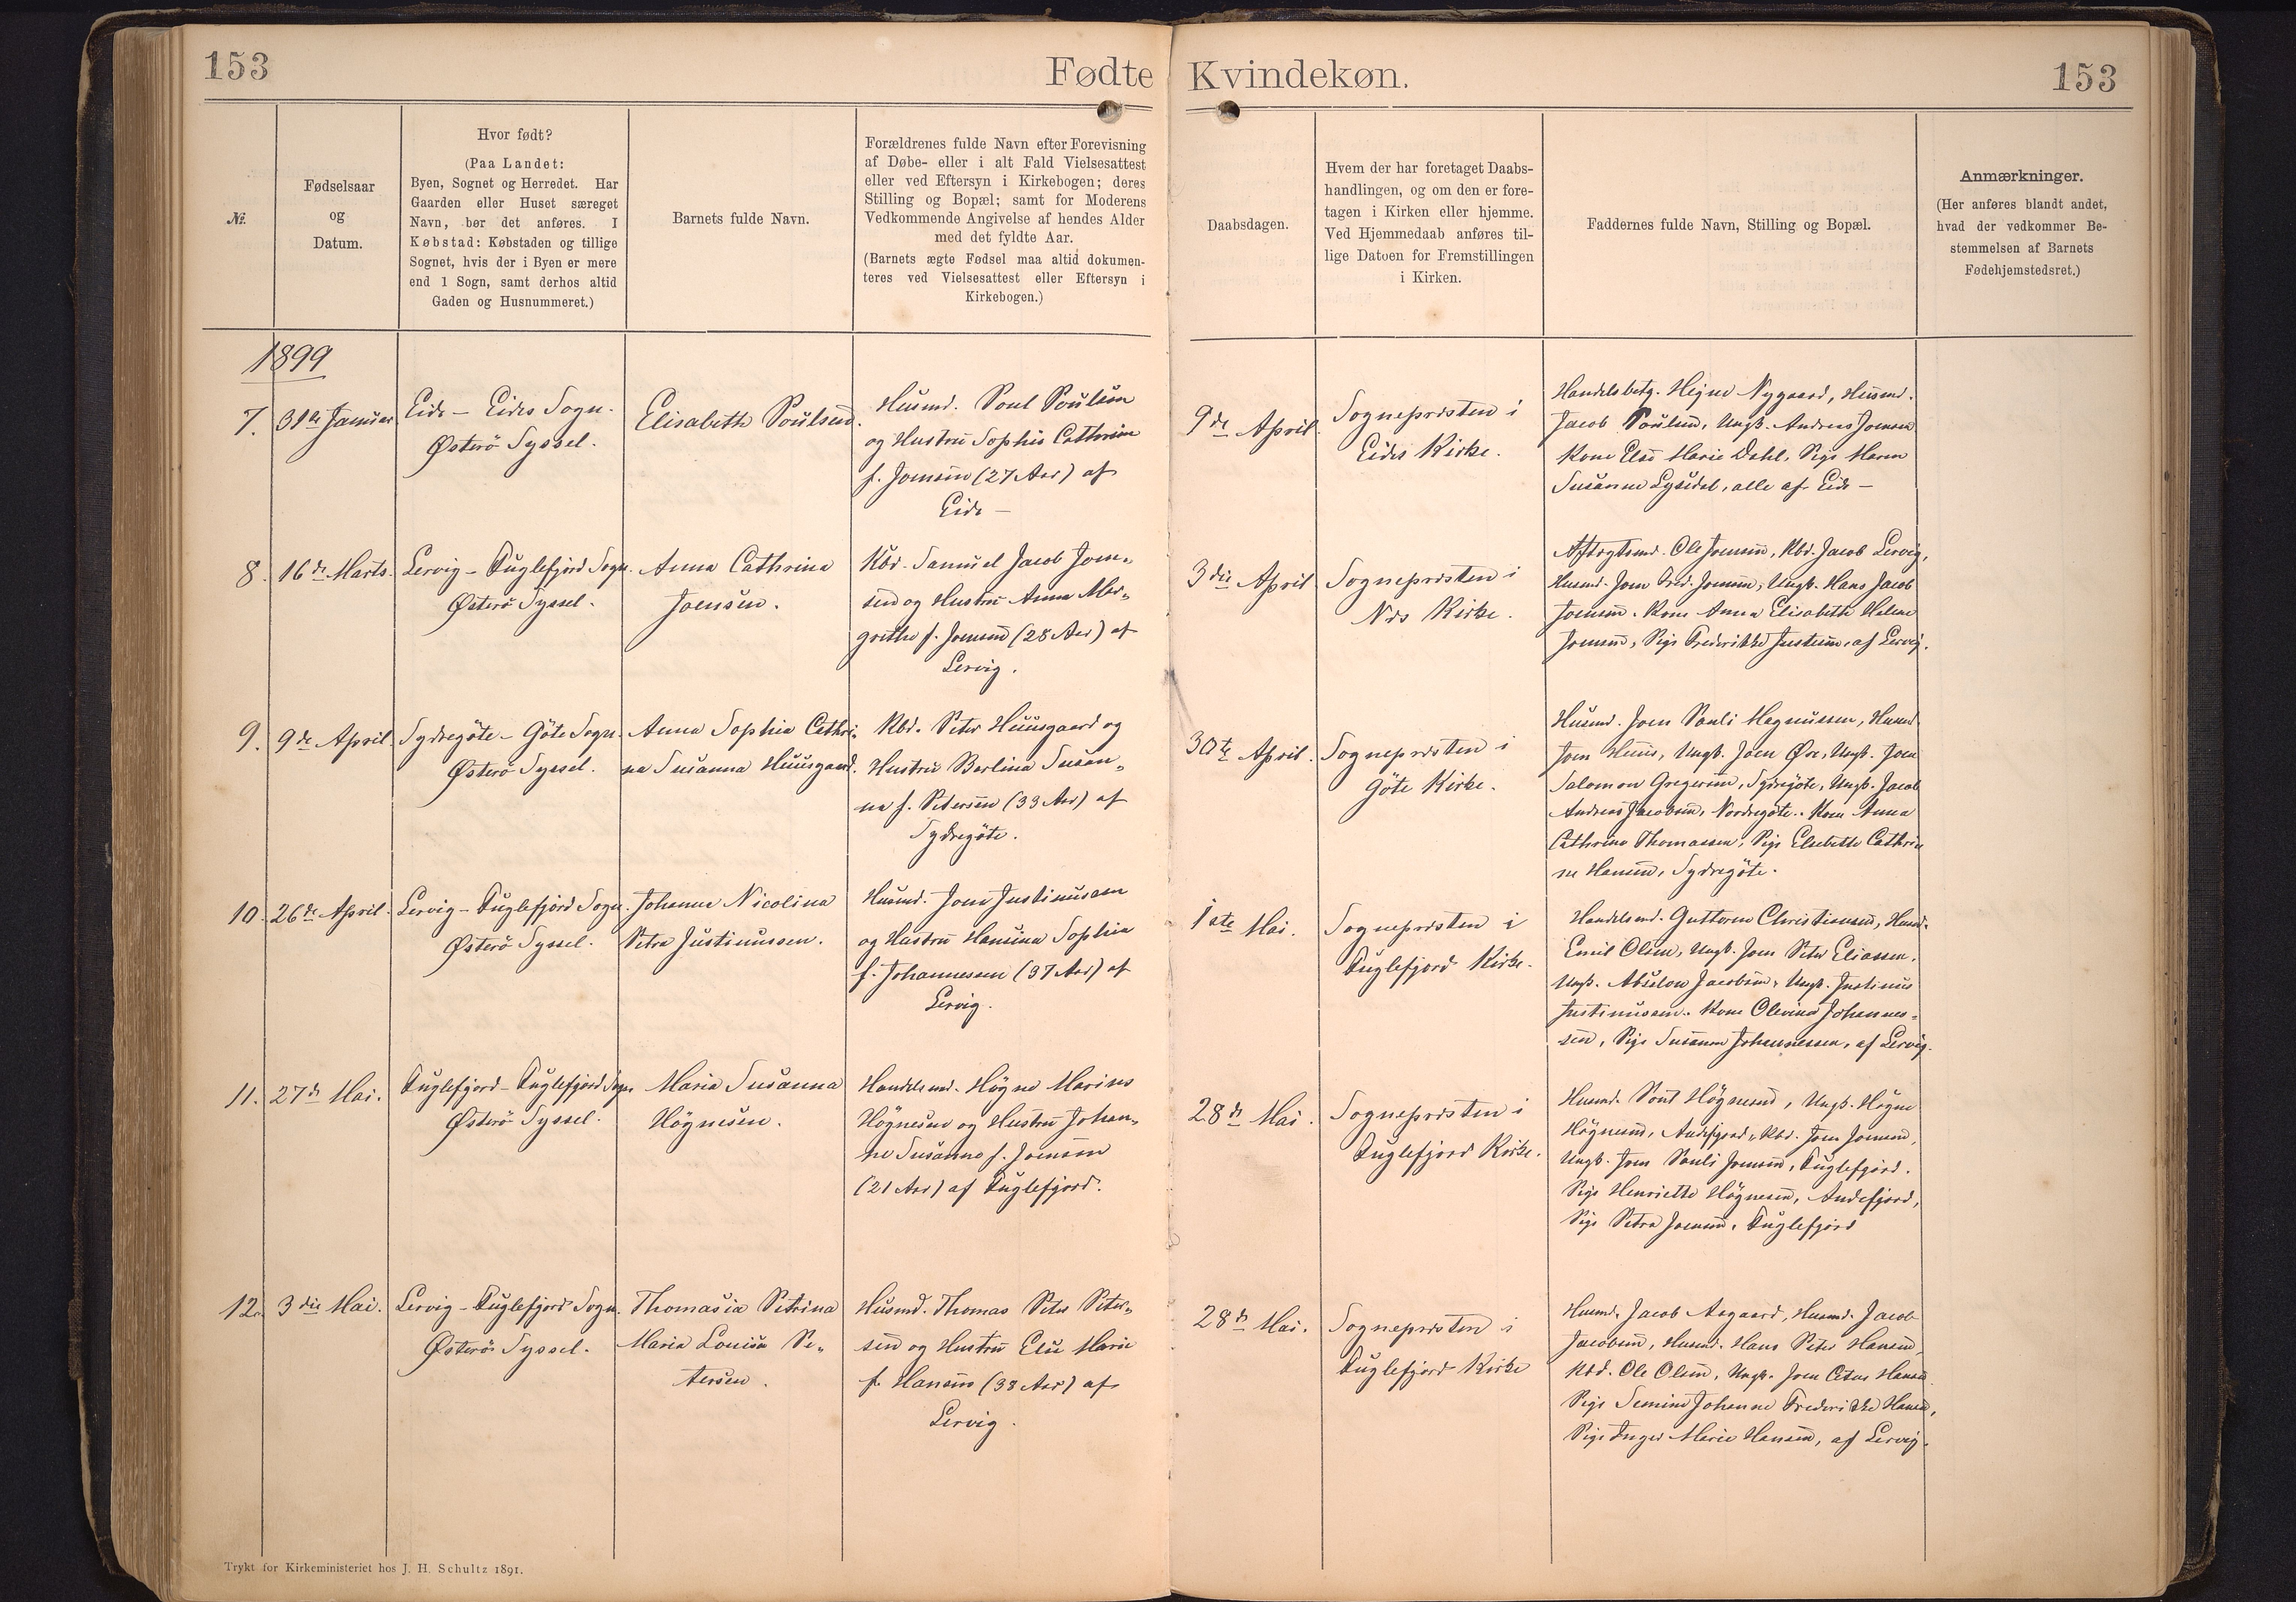 153
Fødte
Kvindekøn.
153
№.
Fødselsaar
og
Datum.
Hvor født?
(Paa Landet:
Byen, Sognet og Herredet. Har
Gaarden eller Huset særeget
Navn, bør det anføres. I
Købstad: Købstaden og tillige
Sognet, hvis der i Byen er mere
end 1 Sogn, samt derhos altid
Gaden og Husnummeret.)
Barnets fulde Navn.
Forældrenes fulde Navn efter Forevisning
af Døbe- eller i alt Fald Vielsesattest
eller ved Eftersyn i Kirkebogen; deres
Stilling og Bopæl; samt for Moderens
Vedkommende Angivelse af hendes Alder
med det fyldte Aar.
(Barnets ægte Fødsel maa altid dokumen-
teres ved Vielsesattest eller Eftersyn i
Kirkebogen.)
Daabsdagen.
Hvem der har foretaget Daabs-
handlingen, og om den er fore-
tagen i Kirken eller hjemme.
Ved Hjemmedaab anføres til-
lige Datoen for Fremstillingen
i Kirken.
Faddernes fulde Navn, Stilling og Bopæl.
Anmærkninger.
(Her anføres blandt andet,
hvad der vedkommer Be-
stemmelsen af Barnets
Fødehjemstedsret.)
1899
7.
31te Januar
Eide - Eides Sogn.
Østerö Syssel.
Elisabeth Poulsen.
Husmd. Poul Poulsen
og Hustru Sophie Cathrine
f. Joensen (27 Aar) af
Eide -
9de April.
Sognepræsten i
Eides Kirke.
Handelsbetg. Hejne Nygaard, Husmd.
Jacob Poulsen, Ungk. Andreas Joensen
Kone Elsé Marie Dahl, Pige Maren
Susanne Lysedal, alle af Eide -
8.
16de Marts.
Lervig - Fuglefjord Sogn.
Østerö Syssel.
Anna Cathrina
Joensen.
Kbd. Samuel Jacob Joen-
sen og Hustru Anna Mar-
grethe f. Joensen (28 Aar) af
Lervig.
3die April
Sognepræsten i
Næs Kirke.
Aftægtsmd. Ole Joensen, Kbd. Jacob Lervig,
Husmd. Joen Fred. Joensen, Ungk. Hans Jacob
Joensen. Kone Anna Elisabeth Helene
Joensen, Pige Frederikke Justesen, af Lervig.
9.
9de April.
Sydregöte - Göte Sogn.
Østerö Syssel.
Anna Sophia Cathri-
na Susanna Huusgaard.
Kbd. Peter Huusgaard og
Hustru Berlina Susan-
na f. Petersen (33 Aar) af
Sydregöte.
30te April.
Sognepræsten i
Göte Kirke.
Husmd. Joen Pauli Magnussen, Husmd.
Joen Huus, Ungk. Joen Øre, Ungk. Joen
Salomon Gregersen, Sydregöte, Ungk. Jacob
Andreas Jacobsen, Nordregöte. Kone Anna
Cathrine Thomassen, Pige Elsebeth Cathri
ne Hansen, Sydregöte.
10.
26de April.
Lervig - Fuglefjord Sogn.
Østerö Syssel.
Johanna Nicolina
Petra Justinussen.
Husmd. Joen Justinussen
og Hustru Hansina Sophia
f. Johannessen (37 Aar) af
Lervig.
1ste Mai.
Sognepræsten i
Fuglefjord Kirke.
Handelsmd. Guttorm Christiansen, Husmd.
Emil Olsen, Ungk. Joen Peter Eliassen.
Ungk. Abselon Jacobsen, Ungk. Justinus
Justinussen. Kone Olevine Johannes-
sen, Pige Susanne Johannessen, af Lervig.
11.
27de Mai.
Fuglefjord - Fuglefjord Sogn
Østerö Syssel.
Maria Susanna
Högnesen.
Handelsmd. Högne Marius
Högnesen og Hustru Johan-
ne Susanne f. Joensen
(21 Aar) af Fuglefjord.
28de Mai.
Sognepræsten i
Fuglefjord Kirke.
Husmd. Poul Högnesen, Ungk. Högne
Högnesen, Andefjord, Kbd. Joen Joensen,
Ungk. Joen Pauli Joensen, Fuglefjord.
Pige Henriette Högnesen, Andefjord,
Pige Petra Joensen, Fuglefjord
12.
3die Mai.
Lervig - Fuglefjord Sogn.
Østerö Syssel.
Thomasia Petrina
Maria Louisa Pe-
tersen.
Husmd. Thomas Peter Peter-
sen og Hustru Else Marie
f. Hansen (38 Aar) af
Lervig.
28de Mai.
Sognepræsten i
Fuglefjord Kirke
Husmd. Jacob Aagaard, Husmd. Jacob
Jacobsen, Husmd. Hans Peter Hansen,
Kbd. Ole Olsen, Ungk. Joen Hansen
Pige Johanne Frederikke Hansen,
Pige Inger Marie Hansen, af Lervig.
Trykt for Kirkeministeriet hos J. H. Schultz 1891.